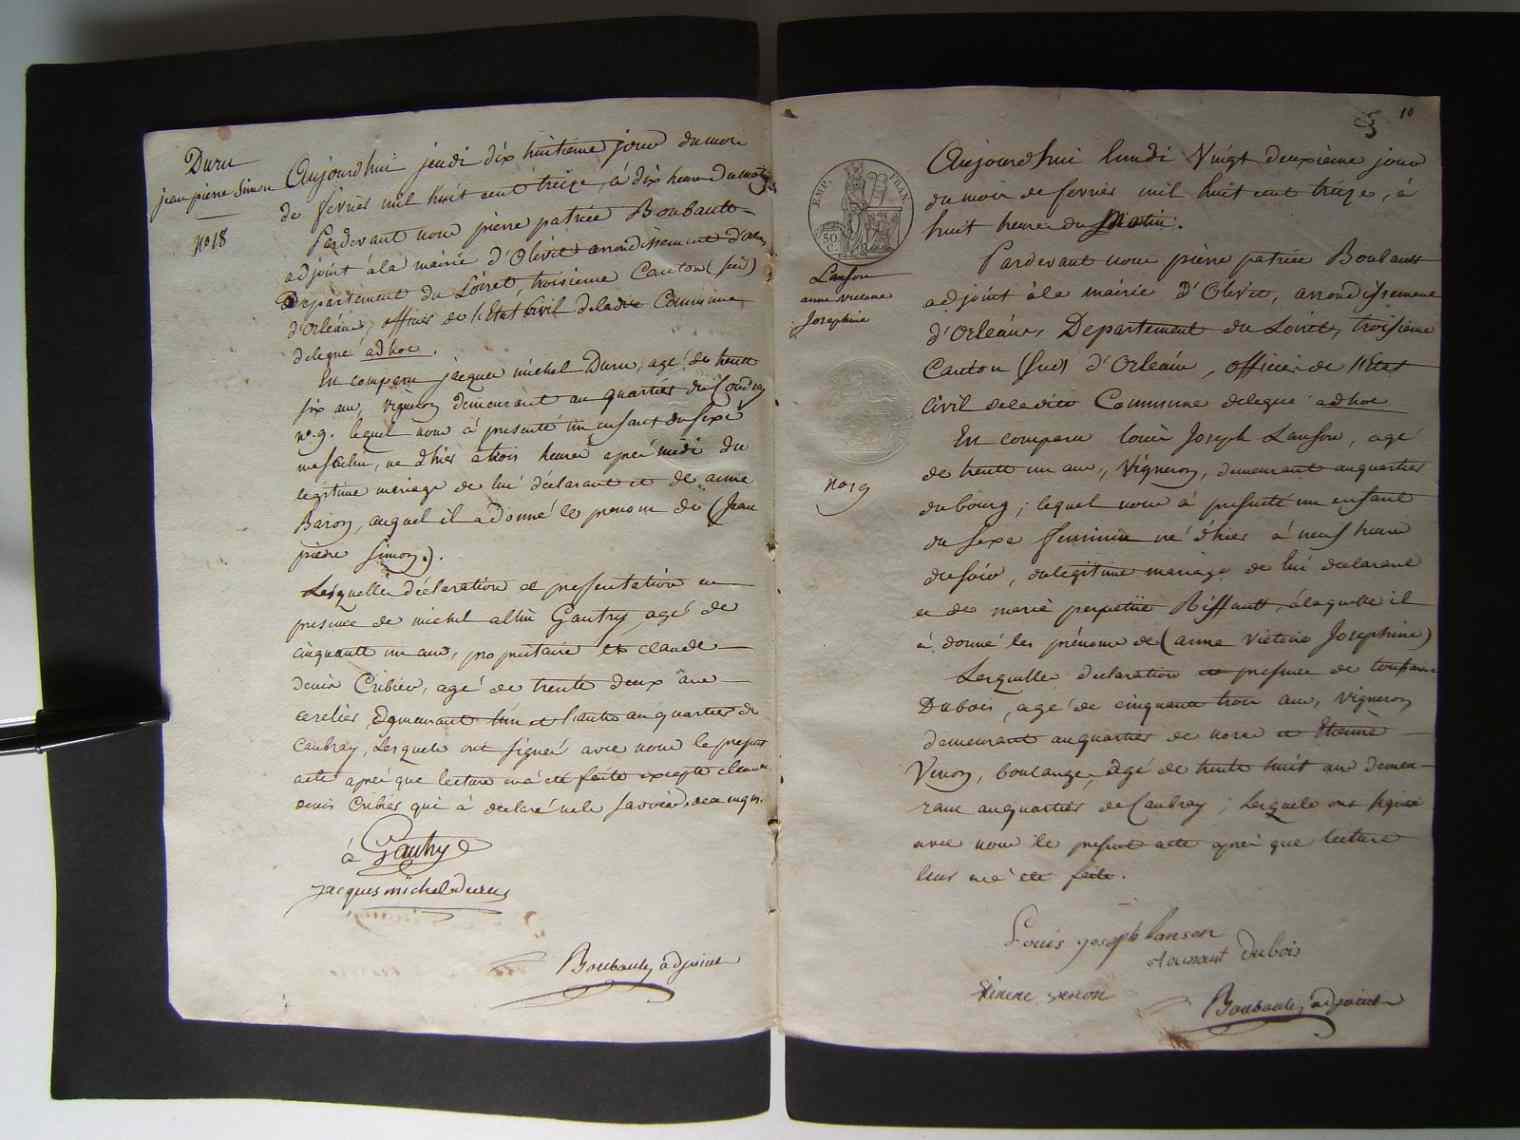 Duru
jean pierre simon
no 18
Aujourdhui jeudi dix huitieme jour du mois
de fevrier mil huit cent treize, à dix heure du matin
Pardevant nous pierre patrice Boubault
adjoint à la mairie d'Olivet arrondissement d'Orleans
Departement du Loiret, troisieme Canton (sud)
d'Orléans, officier de l'Etat Civil de ladite Commune
delegué ad hoc.
En comparu jacques michel Duru, agé de trente
six ans, vigneron demeurant au quartier du Coudray
n°. 9. lequel nous à presenté un enfant du sexe
masculin, né d'hier à trois heures aprés midi du
legitime mariage de lui déclarant et de anne
Baron, auquel il a donné les prenoms de (Jean
pierre simon).
Lesquelles déclaration et pressentation en
presence de michel altin Gautry, agé de
cinquante un ans, proprietaire et claude
denis Cribier, agé de trente deux ans
cerclier, demeurant l'un et l'autre au quartier de
Caubray, Lesquels ont signés avec nous le present
acte aprés que lecture en a été faite excepté claude
denis Cribier qui à declaré ne le savoir de ce enquis.
à Gautry
jacques michel duru
Boubault, adjoint
10
EMP. FRAN.
50
C.
Lanson
anne victoire
Josephine
no 19
Aujourd'hui lundi Vingt deuxième jour
du mois de fevrier mil huit cent treize, à
huit heure du Matin.
Pardevant nous pierre patrice Boubault
adjoint à la mairie d'Olivet, arrondissement
d'Orléans, Departement du Loiret, troisieme
Canton (sud) d'Orléans, officier de l'Etat
Civil de ladite Commune delegué ad hoc
En comparu louis Joseph Lanson, agé
de trente un ans, Vigneron, demeurant au quartier
du bourg; lequel nous à presenté un enfant
du sexe feminin né d'hier à neuf heure
du soir, du legitime mariage de lui declarant
et de marie perpetüe Riffault, à laquelle il
à donné les prénoms de (anne victoire Josephine)
Lesquelles declaration et presence de toussaint
Dubois, agé de cinquante trois ans, Vigneron
demeurant au quartier de et Etienne
Venon, boulanger, agé de trente huit ans demeu-
rant au quartier de Caubray; Lesquels ont signé
avec nous le present acte aprés que lecture
leur en a été faite.
Louis joseph lanson
tousaint dubois
etienne venon
Boubault, adjoint